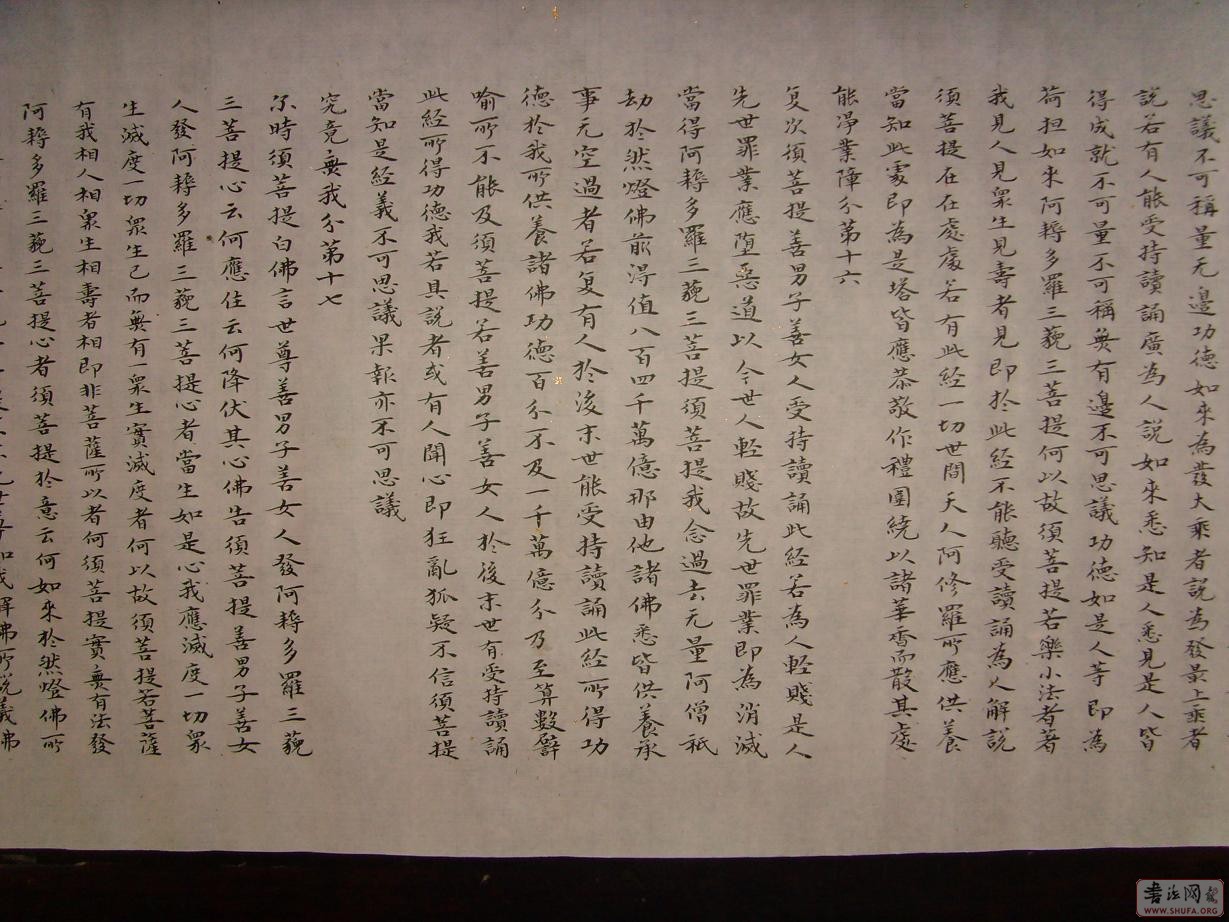 思議不可稱量无邊功德如來為發大乘者說為發最上乘者
說若有人能受持讀誦廣為人說如來悉知是人悉見是人皆
得成就不可量不可稱無有邊不可思議功德如是人等即為
荷担如來阿耨多羅三藐三菩提何以故須菩提若樂小法者著
我見人見衆生見壽者見即於此經不能聽受讀誦為人解說
須菩提在在處處若有此經一切世間天人阿修羅所應供養
當知此處即為是塔皆應恭敬作禮圍繞以諸華香而散其處
能淨業障分第十六
复次須菩提善男子善女人受持讀誦此經若為人輕賤是人
先世罪業應墮惡道以今世人輕賤故先世罪業即為消滅
當得阿耨多羅三藐三菩提須菩提我念過去无量阿僧祇
劫於然燈佛前淂值八百四千萬億那由他諸佛悉皆供養承
事无空過者若复有人於後末世能受持讀誦此經所得功
德於我所供養諸佛功德百分不及一千萬億分乃至算數譬
喻所不能及須菩提若善男子善女人於後末世有受持讀誦
此經所得功德我若具說者或有人聞心即狂亂狐疑不信須菩提
當知是經義不可思議果報亦不可思議
究竟無我分第十七
尔時須菩提白佛言世尊善男子善女人發阿耨多羅三藐
三菩提心云何應住云何降伏其心佛告須菩提善男子善女
人發阿耨多羅三藐三菩提心者當生如是心我應滅度一切衆
生滅度一切衆生已而無有一衆生實滅度者何以故須菩提若菩薩
有我相人相衆生相壽者相即非菩薩所以者何須菩提實無有法發
阿耨多羅三藐三菩提心者須菩提於意云何如來於然燈佛所
世尊如我解佛所說義佛
書法网
WWW.SHUFA.ORG